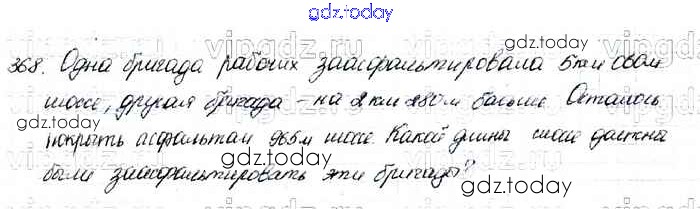 gdz.today
368. Одна бригада рабочих заасфальтировала 5км 060м
шоссе, другая бригада – на 2км 280м больше. Осталось
gdz.today
покрыть асфальтом 965м шоссе. Какой длины шоссе должны
gdz.today
были заасфальтировать эти бригады?
gdz.today